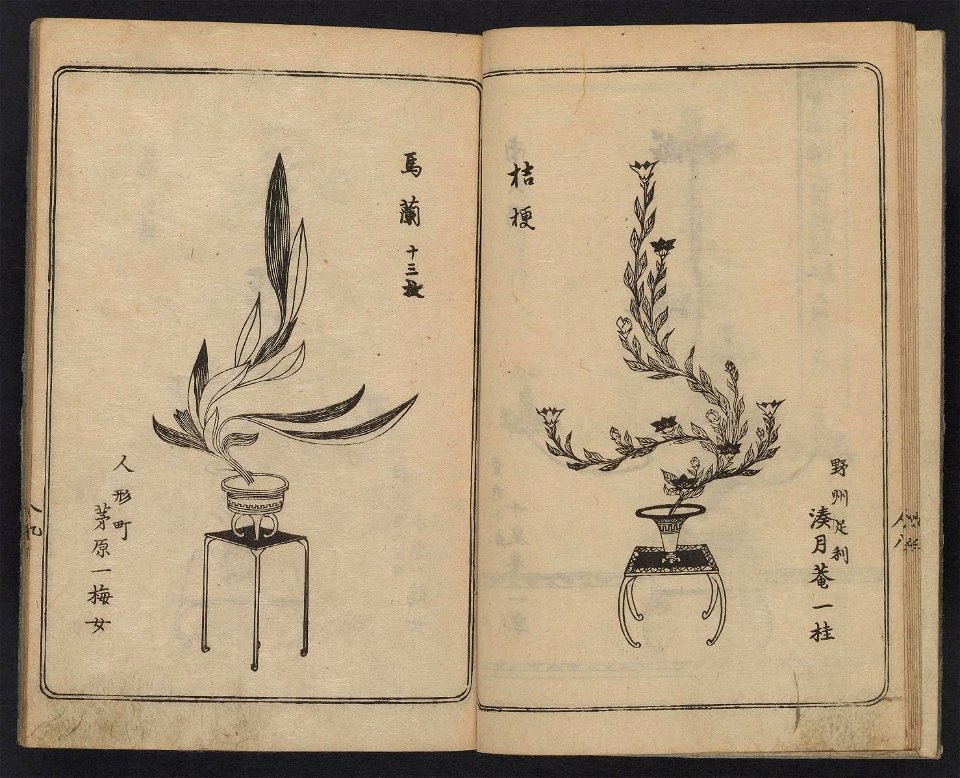 桔梗
野州足利
湊月菴一桂
馬蘭 十三枚
人形町
茅原一梅女